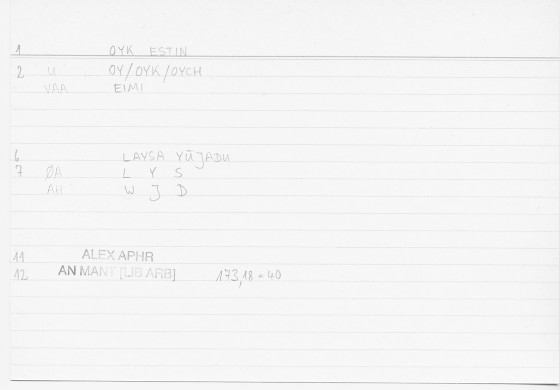 1 OYK ESTIN
2 U OY/OYK/OYCH
VAA EIMI
6 LAYSA YŪJADU
7 ØA L Y S
AH W J D
11 ALEX APHR
12 AN MANT [LIB ARB] 173,18-40